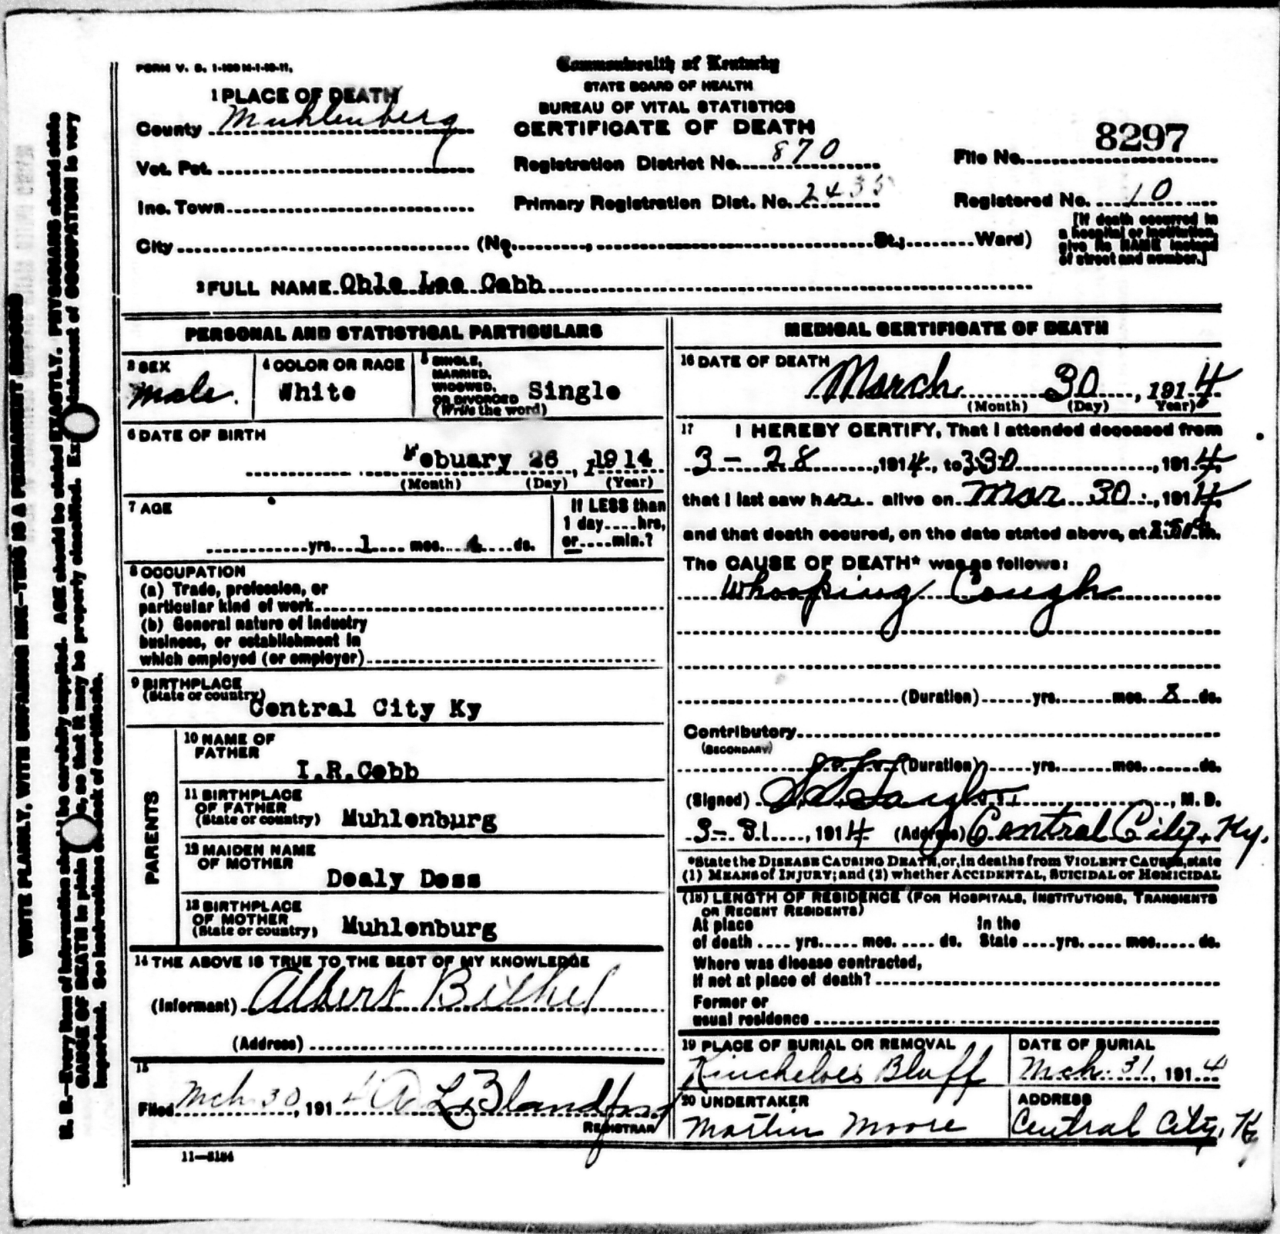 FORM V. S. 1-100M-1-10-11.
Commonwealth of Kentucky
STATE BOARD OF HEALTH
BUREAU OF VITAL STATISTICS
CERTIFICATE OF DEATH
1 PLACE OF DEATH
County Muhlenberg
Vot. Pct.
Inc. Town
City (No. , St.; Ward)
Registration District No. 870
Primary Registration Dist. No. 2435
File No. 8297
Registered No. 10
[If death occurred in
a hospital or institution,
give its NAME instead
of street and number.]
2 FULL NAME Ohle Lee Cobb
PERSONAL AND STATISTICAL PARTICULARS
3 SEX
Male.
4 COLOR OR RACE
White
5 SINGLE,
MARRIED,
WIDOWED,
OR DIVORCED
(Write the word)
Single
6 DATE OF BIRTH
Febuary 26, 1914
(Month) (Day) (Year)
7 AGE
yrs. 1 mos. 4 ds.
If LESS than
1 day....hrs,
or....min.?
8 OCCUPATION
(a) Trade, profession, or
particular kind of work
(b) General nature of industry
business, or establishment in
which employed (or employer)
9 BIRTHPLACE
(State or country)
Central City Ky
PARENTS
10 NAME OF
FATHER
I.R.Cobb
11 BIRTHPLACE
OF FATHER
(State or country) Muhlenburg
12 MAIDEN NAME
OF MOTHER
Dealy Doss
13 BIRTHPLACE
OF MOTHER
(State or country) Muhlenburg
14 THE ABOVE IS TRUE TO THE BEST OF MY KNOWLEDGE
(Informant) Albert Bithel
(Address)
15
Filed Mch 30, 1914 A L Blandford
REGISTRAR
11-5184
MEDICAL CERTIFICATE OF DEATH
16 DATE OF DEATH
March 30, 1914
(Month) (Day) Year)
17 I HEREBY CERTIFY, That I attended deceased from
3-28, 1914, to 330, 1914,
that I last saw h alive on Mar 30, 1914,
and that death occured, on the date stated above, at m.
The CAUSE OF DEATH* was as follows:
Whooping Cough
(Duration) yrs. mos. 8 ds.
Contributory
(SECONDARY)
(Duration) yrs. mos. ds.
(Signed) Taylor, M. D.
3-31, 1914 (Address) Central City, Ky.
*State the DISEASE CAUSING DEATH, or, in deaths from VIOLENT CAUSES, state
(1) MEANS of INJURY; and (2) whether ACCIDENTAL, SUICIDAL or HOMICIDAL
(18) LENGTH OF RESIDENCE (FOR HOSPITALS, INSTITUTIONS, TRANSIENTS
OR RECENT RESIDENTS)
At place In the
of death yrs. mos. ds. State yrs. mos. ds.
Where was disease contracted,
If not at place of death?
Former or
usual residence
19 PLACE OF BURIAL OR REMOVAL
Kincheloes Bluff
DATE OF BURIAL
Mch. 31, 1914
20 UNDERTAKER
Martin Moore
ADDRESS
Central City, Ky
WRITE PLAINLY, WITH UNFADING INK—THIS IS A PERMANENT RECORD
N. B.—Every item of information should be carefully supplied. AGE should be stated EXACTLY. PHYSICIANS should state
CAUSE OF DEATH in plain , so that it may be properly classified. Exact statement of OCCUPATION is very
important. See instructions on back of certificate.